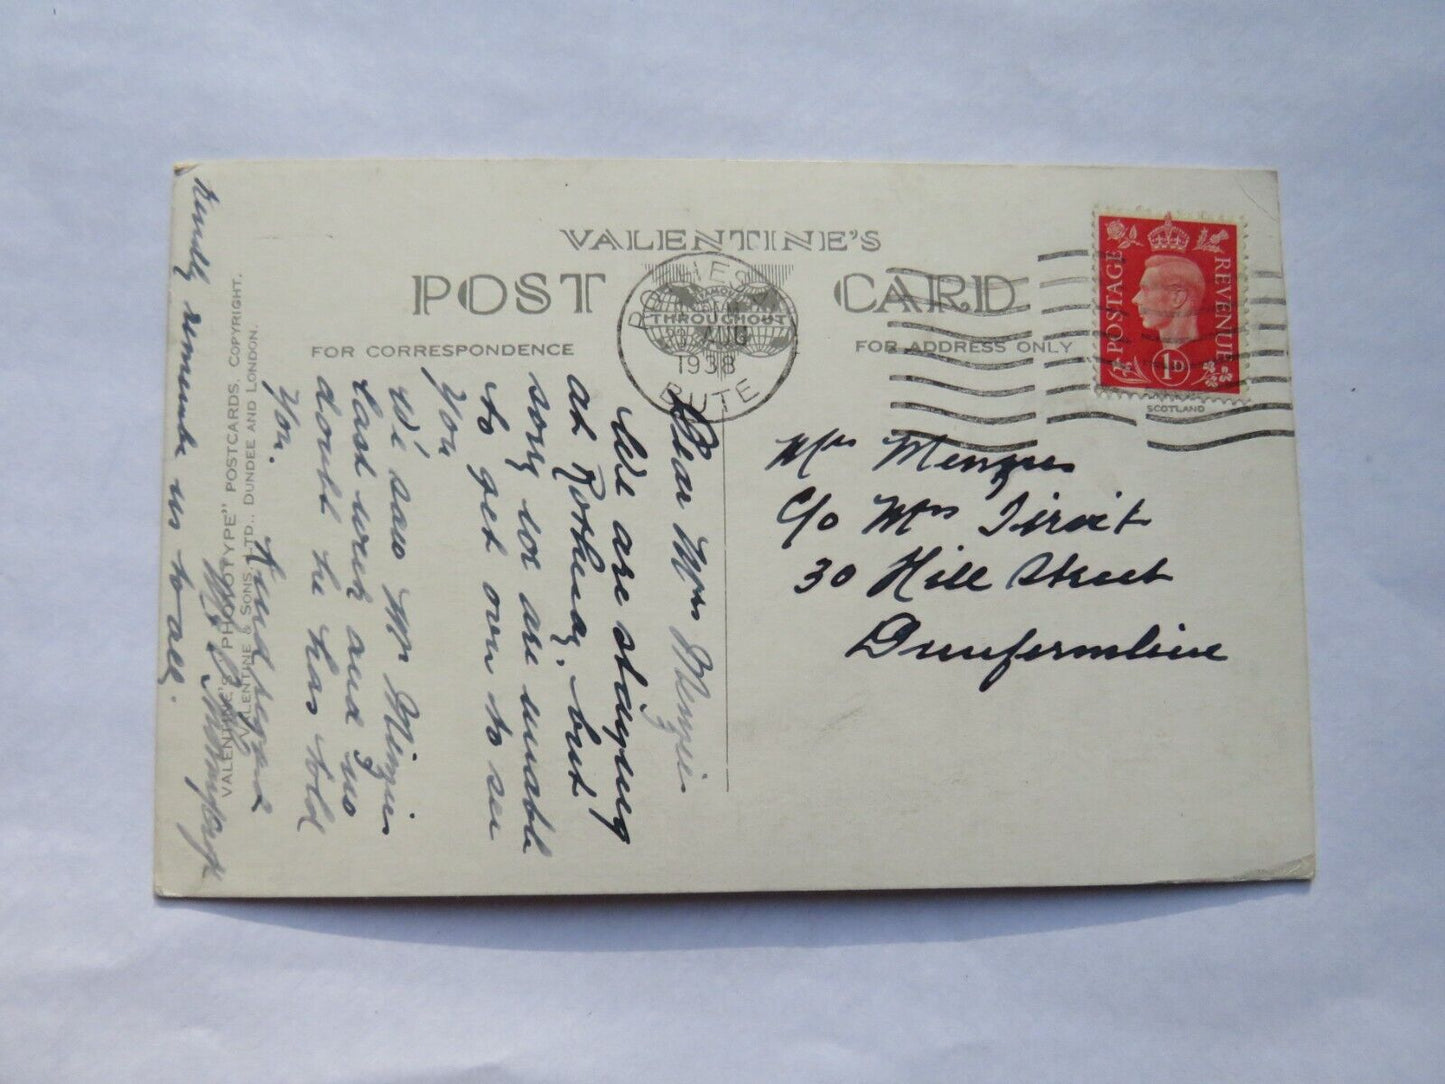 VALENTINE'S
POST CARD
FOR CORRESPONDENCE
FOR ADDRESS ONLY
THROUGHOUT
AUG
1938
BUTE
POSTAGE
REVENUE
1D
SCOTLAND
Mrs Menzies
c/o Mrs
30 Hill Street
Dunfermline
Dear Mrs Menzies
We are staying
at Rothesay, but
sorry we are unable
to get over to see
you
We saw Mr Menzies
last week and no
doubt he has told
you.
Kind regards
Kindly remember us to all.
VALENTINE'S "PHOTOTYPE" POSTCARDS, COPYRIGHT.
VALENTINE & SONS, LTD., DUNDEE AND LONDON.